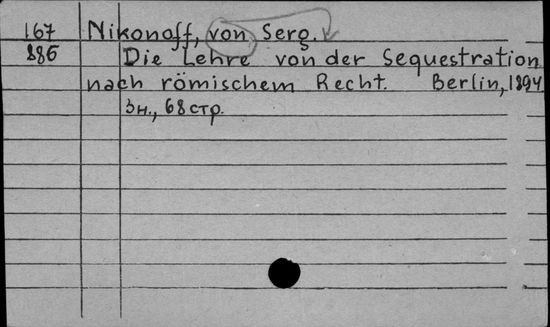 167 Nikonoff, von Serg.
886 Die Lehre von der Sequestration
nach römischem Recht. Berlin, 1894
3н., 68 стр.